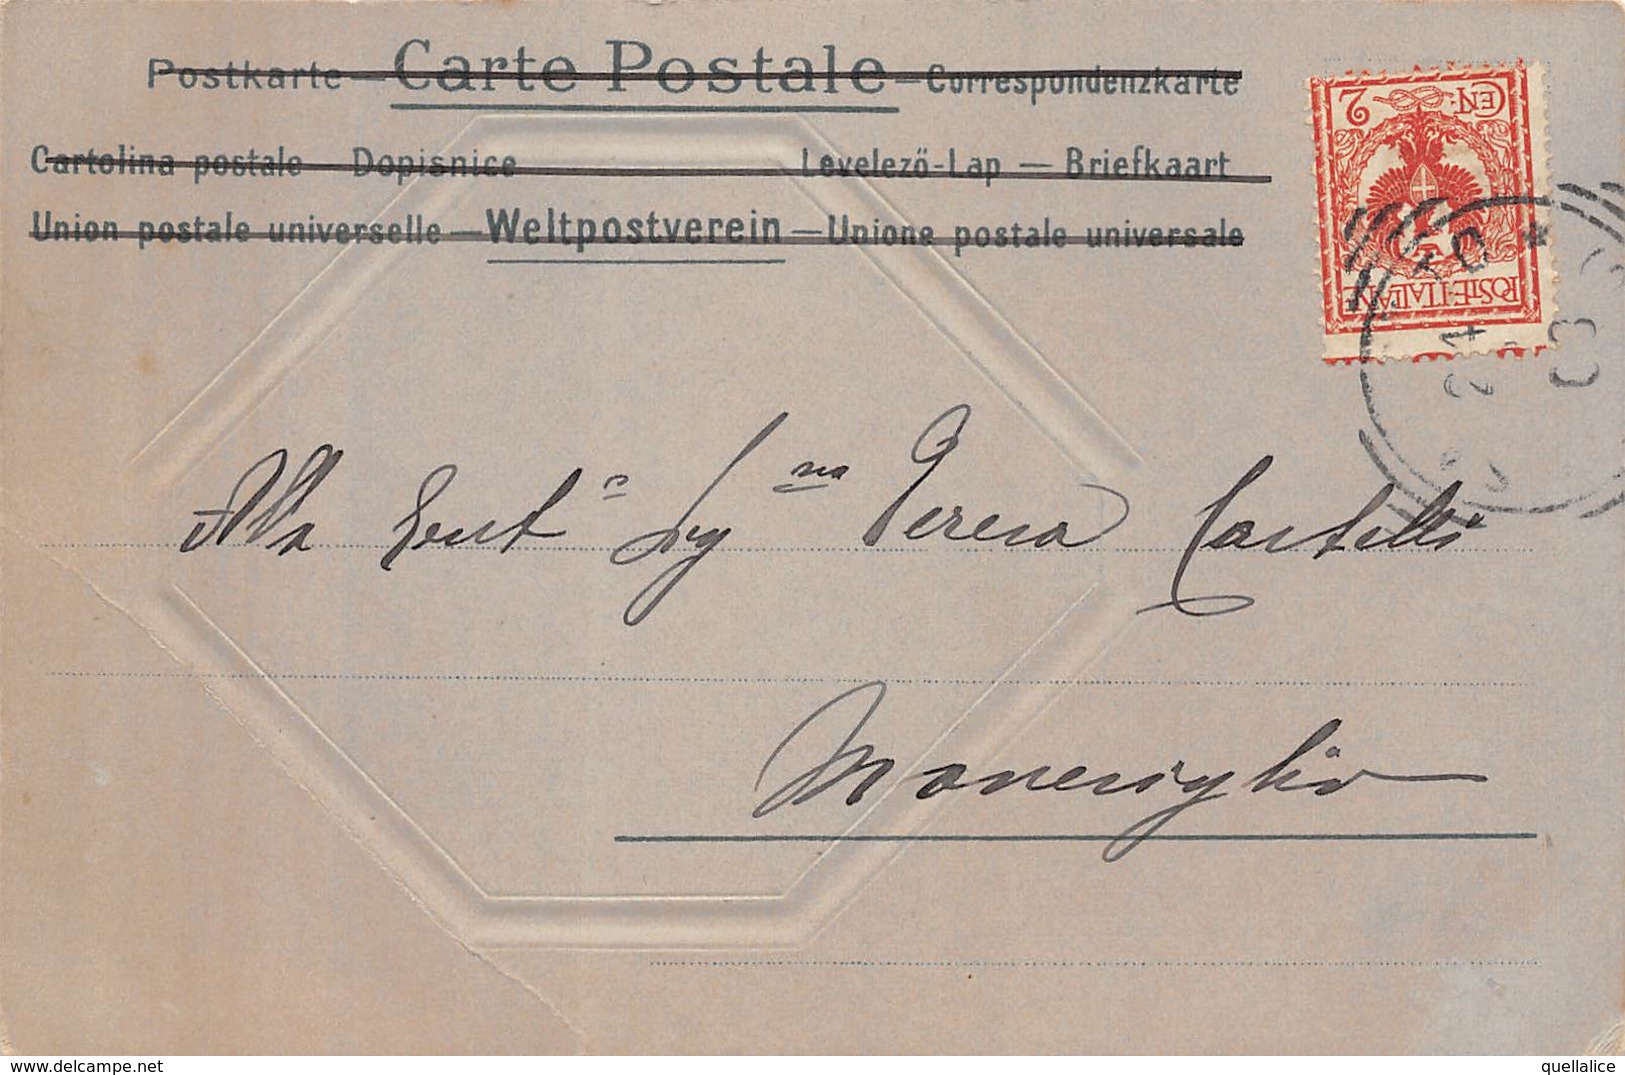 Postkarte — Carte Postale — Correspondenzkarte
Cartolina postale — Dopisnice Levelező-Lap — Briefkaart
Union postale universelle — Weltpostverein — Unione postale universale
CEN. 2
POSTE·ITALIANE
Alla Gent Signa Teresa Castelli
Monesiglio
delcampe.net
quellalice